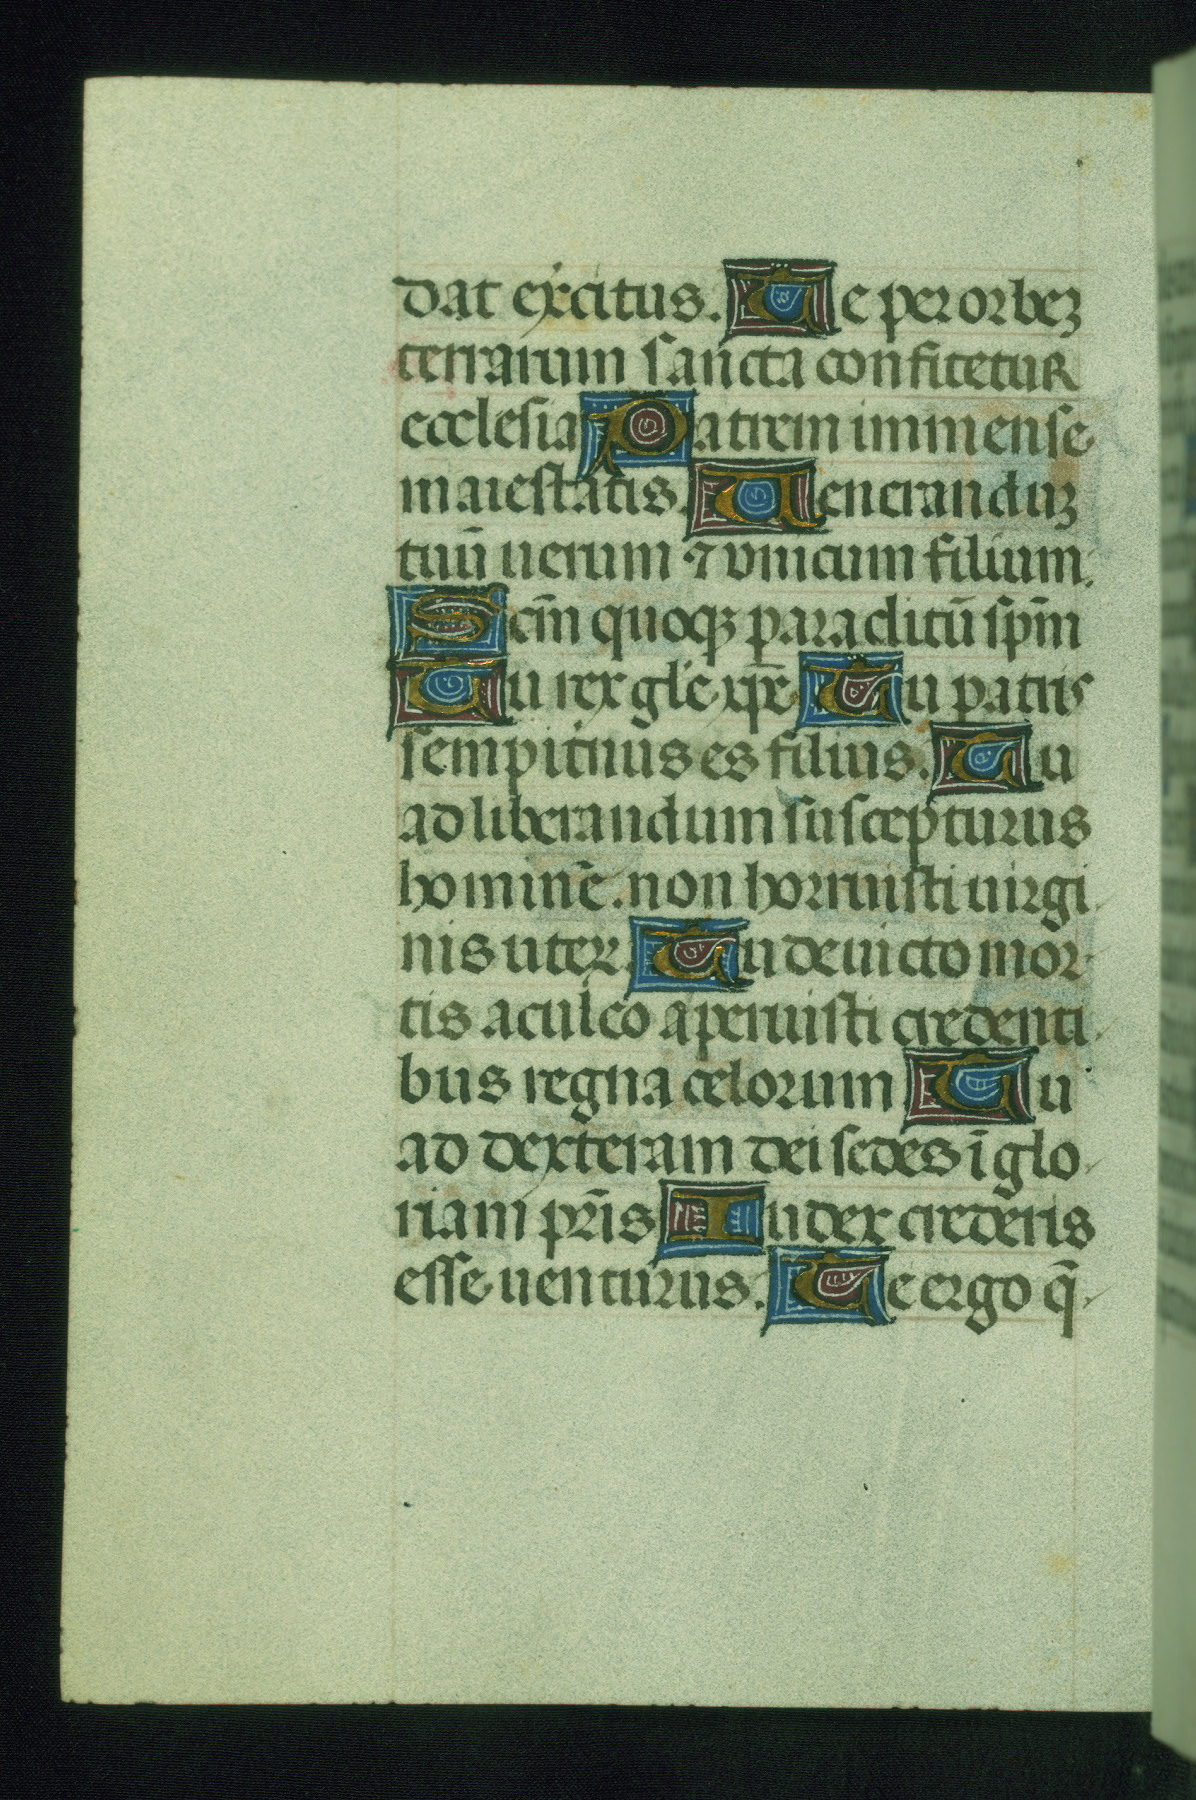 dat exercitus. Te per orbeꝫ
terrarum sancta confitetur
ecclesia Patrem immense
maiestatis. Ueneranduꝫ
tuū uerum ⁊ vnicum filium.
Scm̄ quoqꝫ paraclitū spm̄
Tu rex gl'e xp̄e Tu patris
sempitnus es filius. Tu
ad liberandum suscepturus
hominē. non horruisti uirgi
nis uter. Tu deuicto mor
tis aculeo aperuisti credenti
bus regna celorum Tu
ad dexteram dei sedes ī glo
riam pr̄is Iudex crederis
esse uenturus. Te ergo q̄